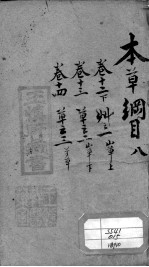 本草綱目 八
卷十二下 艸之一 山草上
卷十三 草之二 山草下
卷十四 草之三 芳草
3541
015
1840